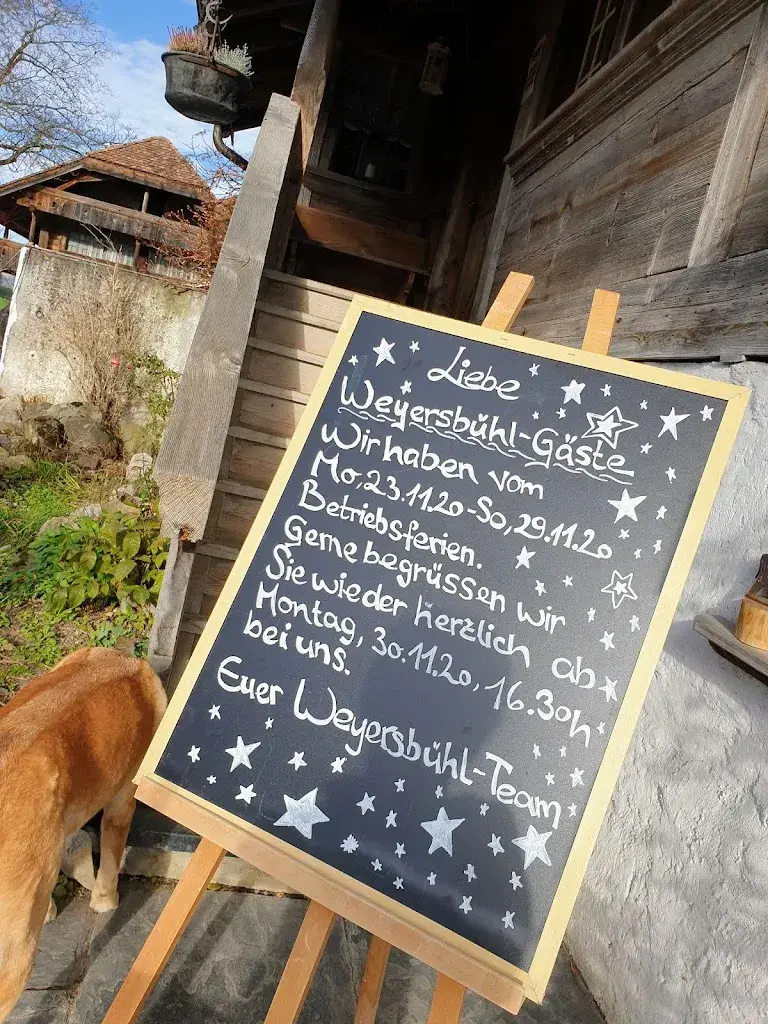 Liebe
Weyersbühl-Gäste
Wir haben vom
Mo, 23.11.20-So, 29.11.20
Betriebsferien.
Gerne begrüssen wir
Sie wieder herzlich ab
Montag, 30.11.20, 16.30h
bei uns.
Euer Weyersbühl-Team